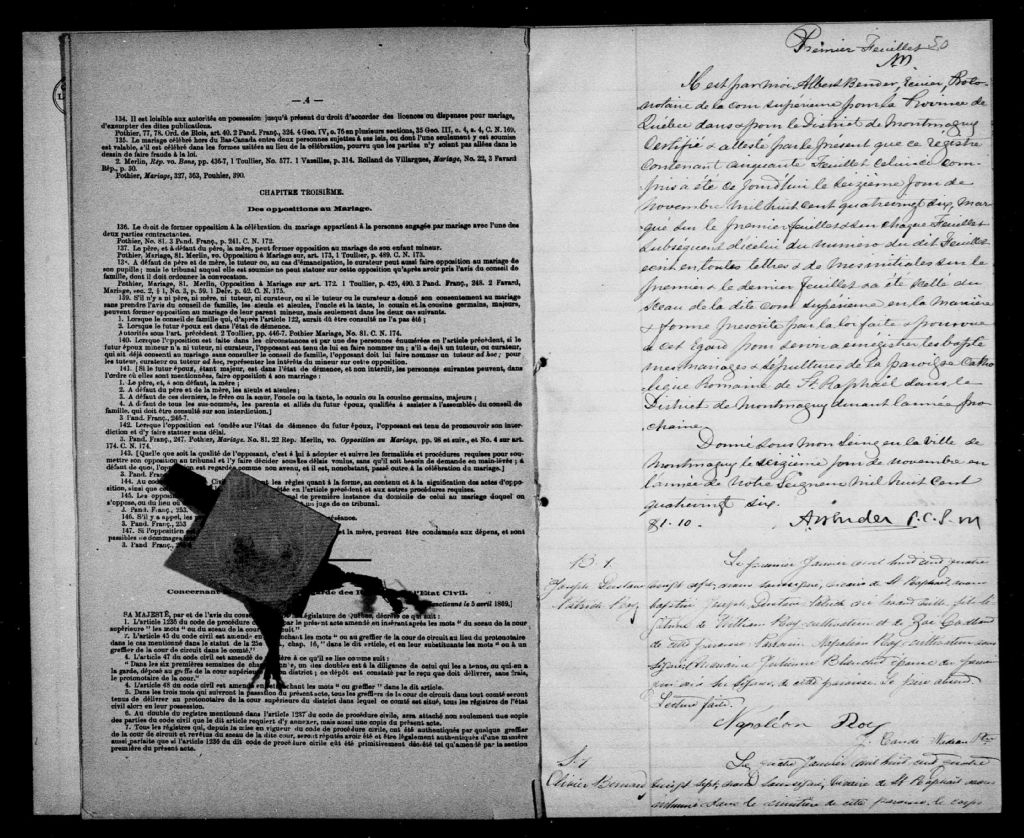 — 4 —
134. Il est loisible aux autorités en possession jusqu'à présent du droit d'accorder des licences ou dispenses pour mariage,
d'exempter des dites publications.
Pothier, 77, 78. Ord. de Blois, art. 40. 2 Pand. Franç., 324. 4 Geo. IV, c. 76 en plusieurs sections, 35 Geo. III, c. 4, s. 4, C. N. 169.
135. Le mariage célébré hors du Bas-Canada entre deux personnes sujettes à ses lois, ou dont l'une seulement y est soumise
est valable, s'il est célébré dans les formes usitées au lieu de la célébration, pourvu que les parties n'y soient pas allées dans le
dessin de faire fraude à la loi.
2. Merlin, Rép. vo. Bans, pp. 436-7, 1 Toullier, No. 577. 1 Vassilles, p. 314. Rolland de Villargues, Mariage, No. 22, 3 Favard
Rép., p. 50.
Pothier, Mariage, 327, 363, Pouhier, 390.
CHAPITRE TROISIÈME.
Des oppositions au Mariage.
136. Le droit de former opposition à la célébration du mariage appartient à la personne engagée par mariage avec l'une des
deux parties contractantes.
Pothier, No. 81. 3 Pand. Franç., p. 241. C. N. 172.
137. Le père, et à défaut du père, la mère, peut former opposition au mariage de son enfant mineur.
Pothier, Mariage, 81. Merlin, vo. Opposition à Mariage sur, art. 173, 1 Toullier, p. 489. C. N. 173.
138. A défaut de père et de mère, le tuteur ou, au cas d'émancipation, le curateur peut aussi faire opposition au mariage de
son pupille; mais le tribunal auquel elle est soumise ne peut statuer sur cette opposition qu'après avoir pris l'avis du conseil de
famille, dont il doit ordonner la convocation.
Pothier, Mariage, 81. Merlin, Opposition à Mariage sur art. 172. 1 Toullier, p. 425, 490. 3 Pand. Franç., 248. 2 Favard,
Mariage, sec. 2, § 1, No. 3, p. 59. 1 Delv. p. 62. C. N. 175.
139. S'il n'y a ni père, ni mère, ni tuteur, ni curateur, ou si le tuteur ou le curateur a donné son consentement au mariage
sans prendre l'avis du conseil de famille, les aïeuls et aïeules, l'oncle et la tante, le cousin et la cousine germains, majeurs,
peuvent former opposition au mariage de leur parent mineur, mais seulement dans les deux cas suivants.
1. Lorsque le conseil de famille qui, d'après l'article 122, aurait dû être consulté ne l'a pas été;
2. Lorsque le futur époux est dans l'état de démence.
Autorités sous l'art. précédent. 2 Toullier, pp. 446-7. Pothier Mariage, No. 81. C. N. 174.
140. Lorsque l'opposition est faite dans les circonstances et par une des personnes énumérées en l'article précédent, si le
futur époux mineur n'a ni tuteur, ni curateur, l'opposant est tenu de lui en faire nommer un; s'il a déjà un tuteur, ou curateur,
qui ait déjà consenti au mariage sans consulter le conseil de famille, l'opposant doit lui faire nommer un tuteur ad hoc; pour
les tuteur, curateur ou tuteur ad hoc, représenter les intérêts du mineur sur cette opposition.
141. [Si le futur époux, étant majeur, est dans l'état de démence, et non interdit, les personnes suivantes peuvent, dans
l'ordre où elles sont mentionnées, faire opposition à son mariage:
1. Le père, et, à son défaut, la mère;
2. A défaut du père et de la mère, les aïeuls et aïeules;
3. A défaut de ces derniers, le frère ou la sœur, l'oncle ou la tante, le cousin ou la cousine germains, majeurs;
4. A défaut de tous les sus-nommés, les parents et alliés du futur époux, qualifiés à assister à l'assemblée du conseil de
famille, qui doit être consulté sur son interdiction.]
3 Pand. Franç., 246-7.
142. Lorsque l'opposition est fondée sur l'état de démence du futur époux, l'opposant est tenu de promouvoir son inter-
diction et d'y faire statuer sans délai.
3. Pand. Franç., 247. Pothier, Mariage. No. 81. 22 Rep. Merlin, vo. Opposition au Mariage, pp. 98 et suiv., et No. 4 sur art.
174. C. N. 174.
143. [Quelle que soit la qualité de l'opposant, c'est à lui à adopter et suivre les formalités et procédures requises pour sou-
mettre son opposition au tribunal et l'y faire décider sous les délais voulus, sans qu'il soit besoin de demande en main-levée; à
défaut de quoi, l'opposition est regardée comme non avenu, et il est, nonobstant, passé outre à la célébration du mariage.]
3. Pand. Fra
144. Au co Civi les règles quant à la forme, au contenu et à la signification des actes d'oppo-
sition, ainsi que ce tée en l'article précédent et aux autres procédures requises.
145. Les opposi al de première instance du domicile de celui au mariage duquel on
s'oppose, ou du lieu où un juge de ce tribunal.
3. Pand. Franç., 253.
146. S'il y a appel, les érance.
3. Pand. Franç., 253
147. Si l'opposition est et la mère, peuvent être condamnés aux dépens, et sont
possibles de dommages
3. Pand. Franç.,
Concernant rde des Re l'Etat Civil.
[Sanctionné le 5 avril 1869.]
SA MAJESTÉ, par et de l'avis du cons égislature de Québec, décrète ce qui suit:
1. L'article 1236 du code de procédure le présent acte amendé en insérant après les mots " du sceau de la cour
supérieure " les mots " ou du sceau de la cour uit."
2. L'article 45 du code civil est amendé en nchant les mots " ou au greffier de la cour de circuit au lieu du protonotaire
dans le cas mentionné dans le statut de la 25e , chap. 16, " dans le dit article, et en leur substituant les mots " ou à un
greffier de la cour de circuit dans le comté."
4. L'article 47 du code civil est amendé de ière à ce qu'il se lise comme suit:
" Dans les six premières semaines de chaq nn e, un des doubles est à la diligence de celui qui les a tenus, ou qui en a
la garde, déposé au greffe de la cour supérieu district; ce dépôt est constaté par le reçu que doit délivrer, sans frais,
le protonotaire de la cour."
4. L'article 48 du code civil est amend tranchant les mots " ou greffier " dans le dit article.
5. Dans les trois mois qui suivront la passation du présent acte, tous les greffiers de la cour de circuit dans tout comté seront
tenus de délivrer au protonotaire de la cour supérieure du district dans lequel ce comté est situé, tous les registres de l'état
civil alors en leur possession.
6. Au double du registre mentionné dans l'article 1237 du code de procédure civile, sera attaché non seulement une copie
des parties du code civil que le dit article requiert d'y annexer, mais aussi une copie du présent acte.
7. Tous les registres qui, depuis la mise en vigueur du code de procédure civile, ont été authentiqués par quelque greffier
de la cour de circuit et revêtu du sceau de la dite cour, seront réputés avoir été et être légalement authentiqués d'une manière
aussi parfaite que si l'article 1236 du dit code de procédure civile eût été primitivement décrété tel qu'amendé par la section
première du présent acte.
Premier Feuillet 50
Il est par moi, Albert Bender, Ecuier, Proto-
notaire de la cour supérieure pour la Province de
Québec dans & pour le District de Montmagny
Certifié & attesté par le présent que ce régistre
contenant cinquante Feuillet celui-ci com-
pris a été ce jourd'hui le seizième jour de
novembre mil huit cent quatrevingt six, mar-
qué sur le premier feuillet & sur chaque Feuillet
subséquent d'icelui du numéro du dit Feuillet
écrit en toutes lettres & de mes initiales sur le
premier & le dernier feuillet & a été scellé du
sceau de la dite cour supérieure en la manière
& forme prescrite par la loi faite & pourvue
à cet égard pour servir à enregistrer les baptê
mes mariages & sépultures de la paroisse Catho
lique Romaine de St Raphaël dans le
District de Montmagny durant l'année pro
chaine
Donné sous mon seing en la ville de
Montmagny le seizième jour de novembre en
l'année de Notre Seigneur mil huit cent
quatrevingt six.
$1.10. A Bender P.C.S.M
B 1. Le premier Janvier mil huit cent quatre
Joseph Gustave vingt sept, nous soussigné, vicaire de St Raphaël avons
Patrick Roy baptisé Joseph Gustave Patrick né avant veille, fils lé
gitime de William Roy cultivateur et de
de cette paroisse. Parrain Napoléon Roy cultivateur
signé; Marraine Blanchet épouse du parrain
de cette paroisse. Le père absent.
Lecture faite.
Napoléon Roy
Ptre
S. 1 Le Janvier mil huit cent quatre
Olivier Bernard vingt sept, nous soussigné, vicaire de St Raphaël avons
inhumé dans le cimetière de cette paroisse, le corps